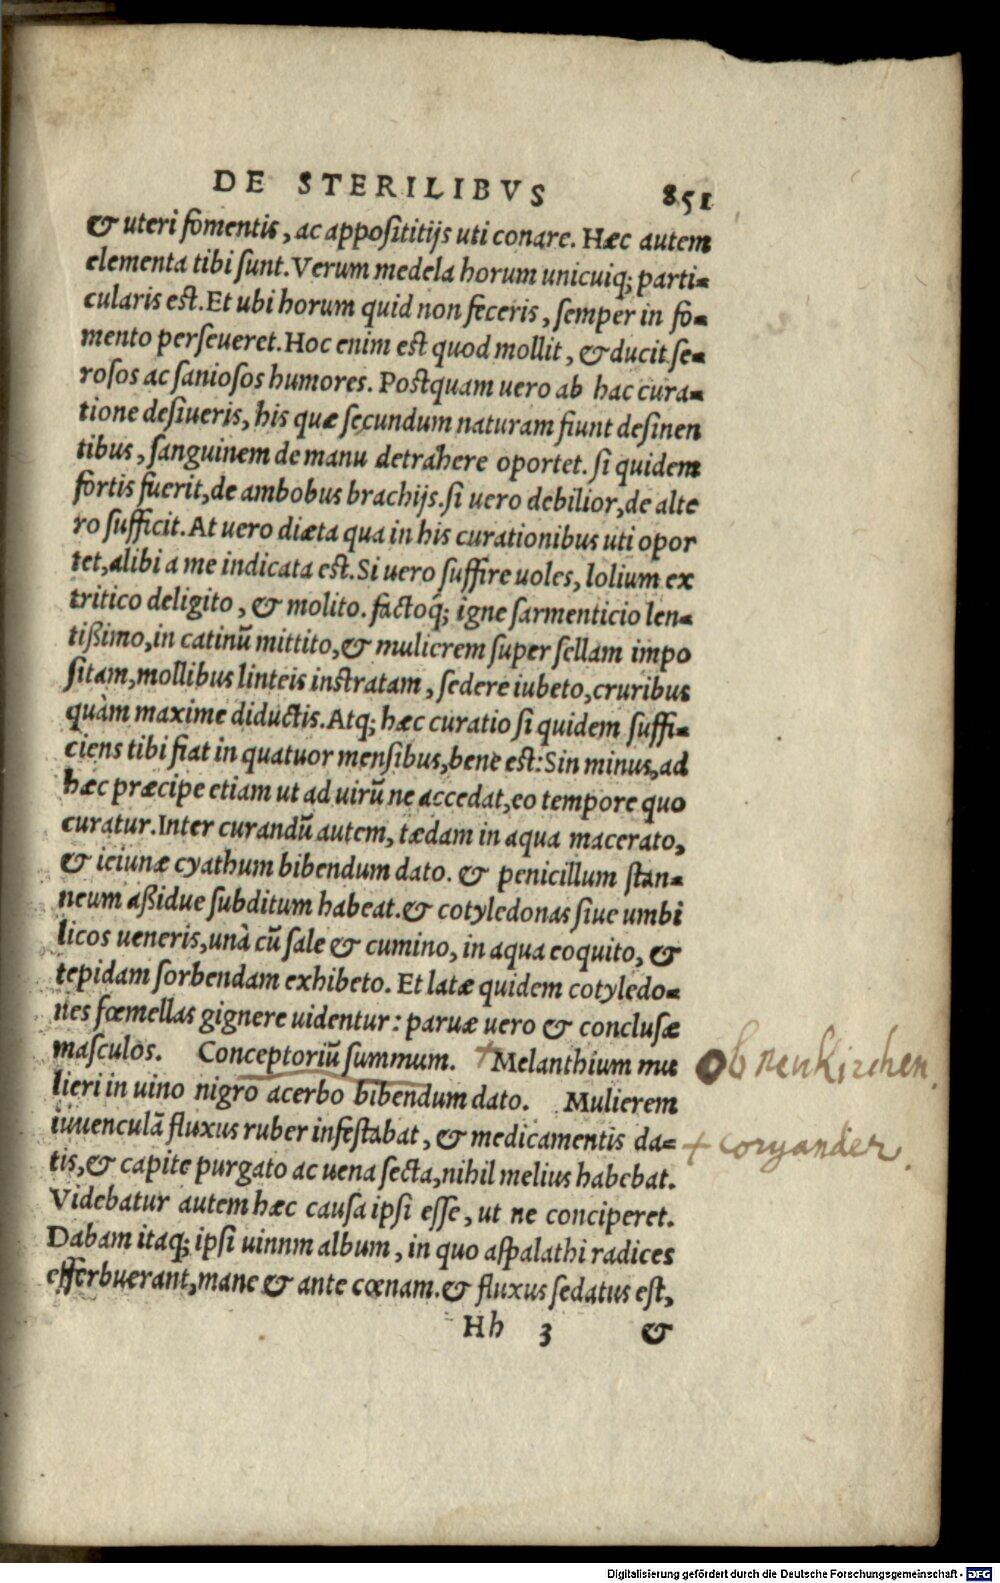 DE STERILIBVS 851
& uteri fomentis, ac apposititijs uti conare. Hæc autem
elementa tibi sunt. Verum medela horum unicuiq; parti-
cularis est. Et ubi horum quid non feceris, semper in fo-
mento perseueret. Hoc enim est quod mollit, & ducit se-
rosos ac saniosos humores. Postquam uero ab hac cura-
tione desiueris, his quæ secundum naturam fiunt desinen
tibus, sanguinem de manu detrahere oportet. si quidem
fortis fuerit, de ambobus brachijs. si uero debilior, de alte
ro sufficit. At uero diæta qua in his curationibus uti opor
tet, alibi a me indicata est. Si uero suffire uoles, lolium ex
tritico deligito, & molito. factoq́; igne sarmenticio len-
tißimo, in catinũ mittito, & mulierem super sellam impo
sitam, mollibus linteis instratam, sedere iubeto, cruribus
quàm maxime diductis. Atq; hæc curatio si quidem suffi-
ciens tibi fiat in quatuor mensibus, bene est: Sin minus, ad
hæc præcipe etiam ut ad uirũ ne accedat, eo tempore quo
curatur. Inter curandũ autem, tædam in aqua macerato,
& ieiunæ cyathum bibendum dato. & penicillum stan-
neum aßidue subditum habeat. & cotyledonas siue umbi
licos ueneris, unà cũ sale & cumino, in aqua coquito, &
tepidam sorbendam exhibeto. Et latæ quidem cotyledo-
nes fœmellas gignere uidentur: paruæ uero & conclusæ
masculos. Conceptoriũ summum. + Melanthium mu
lieri in uino nigro acerbo bibendum dato. Mulierem
iuuenculã fluxus ruber infestabat, & medicamentis da-
+ coryander.
tis, & capite purgato ac uena secta, nihil melius habebat.
Videbatur autem hæc causa ipsi esse, ut ne conciperet.
Dabam itaq; ipsi uinnm album, in quo aspalathi radices
efferbuerant, mane & ante cœnam. & fluxus sedatus est,
Hh 3 &
Digitalisierung gefördert durch die Deutsche Forschungsgemeinschaft - DFG